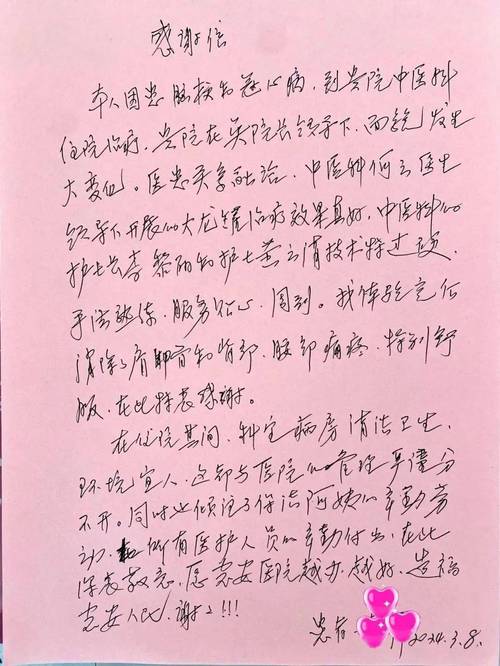 感谢信
本人因患脑梗和冠心病，到贵院中医科
住院治疗，贵院在吴院长领导下，面貌发生
大变化。医患关系融洽，中医科何云医生
领导下开展的大龙罐治疗效果真好，中医科的
护士长李黎丽和护士黄云清技术特过硬，
手法熟练，服务贴心，周到。我体验完后
消除了肩胛骨和背部，腰部痛疼，特别舒
服，在此特表感谢。
在住院其间，科室病房清洁卫生，
环境宜人，这都与医院的管理严谨分
不开。同时也倾注了保洁阿姨的辛勤劳
动，和所有医护人员的辛勤付出，在此
深表敬意。愿惠安医院越办越好，造福
惠安人民，谢谢！！！
患者
2024.3.8.